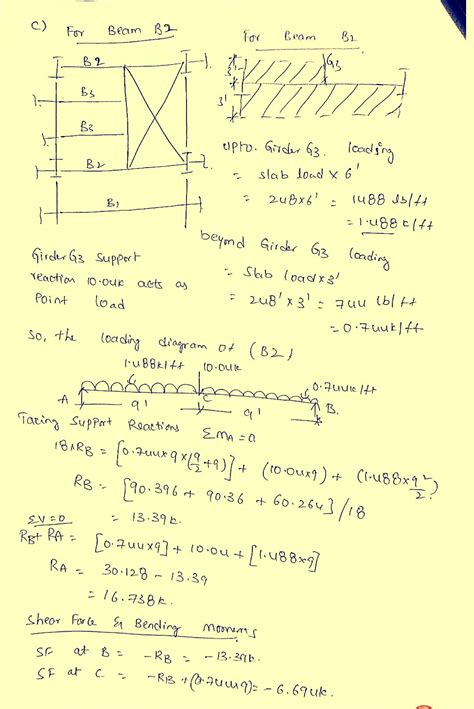 c) For Beam B2
For Beam B2
B2
B3
B3
B2
B1
3'
3'
G3
upto Girder G3 loading
= slab load x 6'
= 248x6' = 1488 lb/ft
= 1.488 k/ft
beyond Girder G3 loading
= Slab loadx3'
= 248'x3' = 744 lb/ft
= 0.744k/ft
Girder G3 support
reaction 10.04k acts as
Point load
So, the loading diagram of (B2)
1.488k/ft 10.04k
0.744k/ft
A C B.
9' 9'
Taking Support Reactions ΣMA = 0
18xRB = [0.744x9x(9/2+9)] + (10.04x9) + (1.488x9²/2)
RB = [90.396 + 90.36 + 60.264]/18
= 13.39k.
ΣV=0
RB+RA = [0.744x9] + 10.04 + [1.488x9]
RA = 30.128 - 13.39
= 16.738k.
Shear Force & Bending Moments
SF at B = -RB = -13.39k.
SF at C = -RB + (0.744x9) = -6.694k.